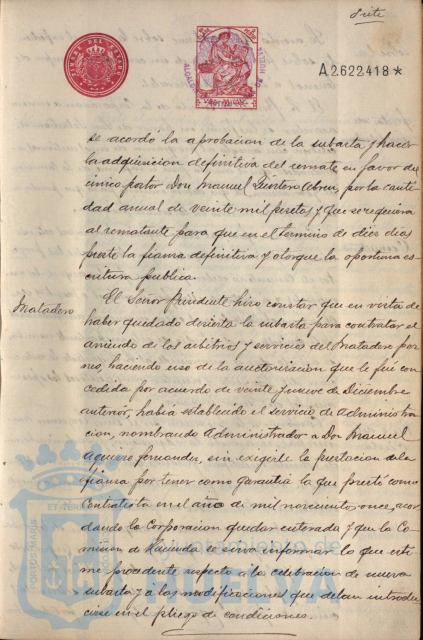 Siete
TIMBRE DEL ESTADO
A2.622.418*
ALCALDIA HUELVA
se acordó la aprobacion de la subasta, y hacer
la adquisicion definitiva del remate en favor del
único postor Don Manuel Quintero Abreu, por la canti
dad anual de veinte mil pesetas, y que se requiera
al rematante para que en el termino de diez dias
preste la fianza definitiva y otorgue la oportuna es-
critura publica.
Matadero
El Señor Presidente hizo constar que en vista de
haber quedado desierta la subasta para contratar el
arriendo de los arbitrios y servicio del Matadero por
neo, haciendo uso de la auctorizacion que le fué con
cedida por acuerdo de veinte y nueve de Diciembre
anterior, habia establecido el servicio de Administra
cion, nombrando Administrador a Don Manuel
Aguero Fernandez, sin exigirle la prestacion de la
fianza por tener como garantia la que prestó como
Contratista en el año de mil novecientos once, acor
dando la Corporacion quedar enterada y que la Co-
mision de Hacienda se sirva informar lo que esti
me procedente respecto a la celebracion de nueva
subasta y a las modificaciones que deban introdu
cirse en el pliego de condiciones.
PORTUS MARIS
ET TERRAE
Ayuntamiento de
HUELVA